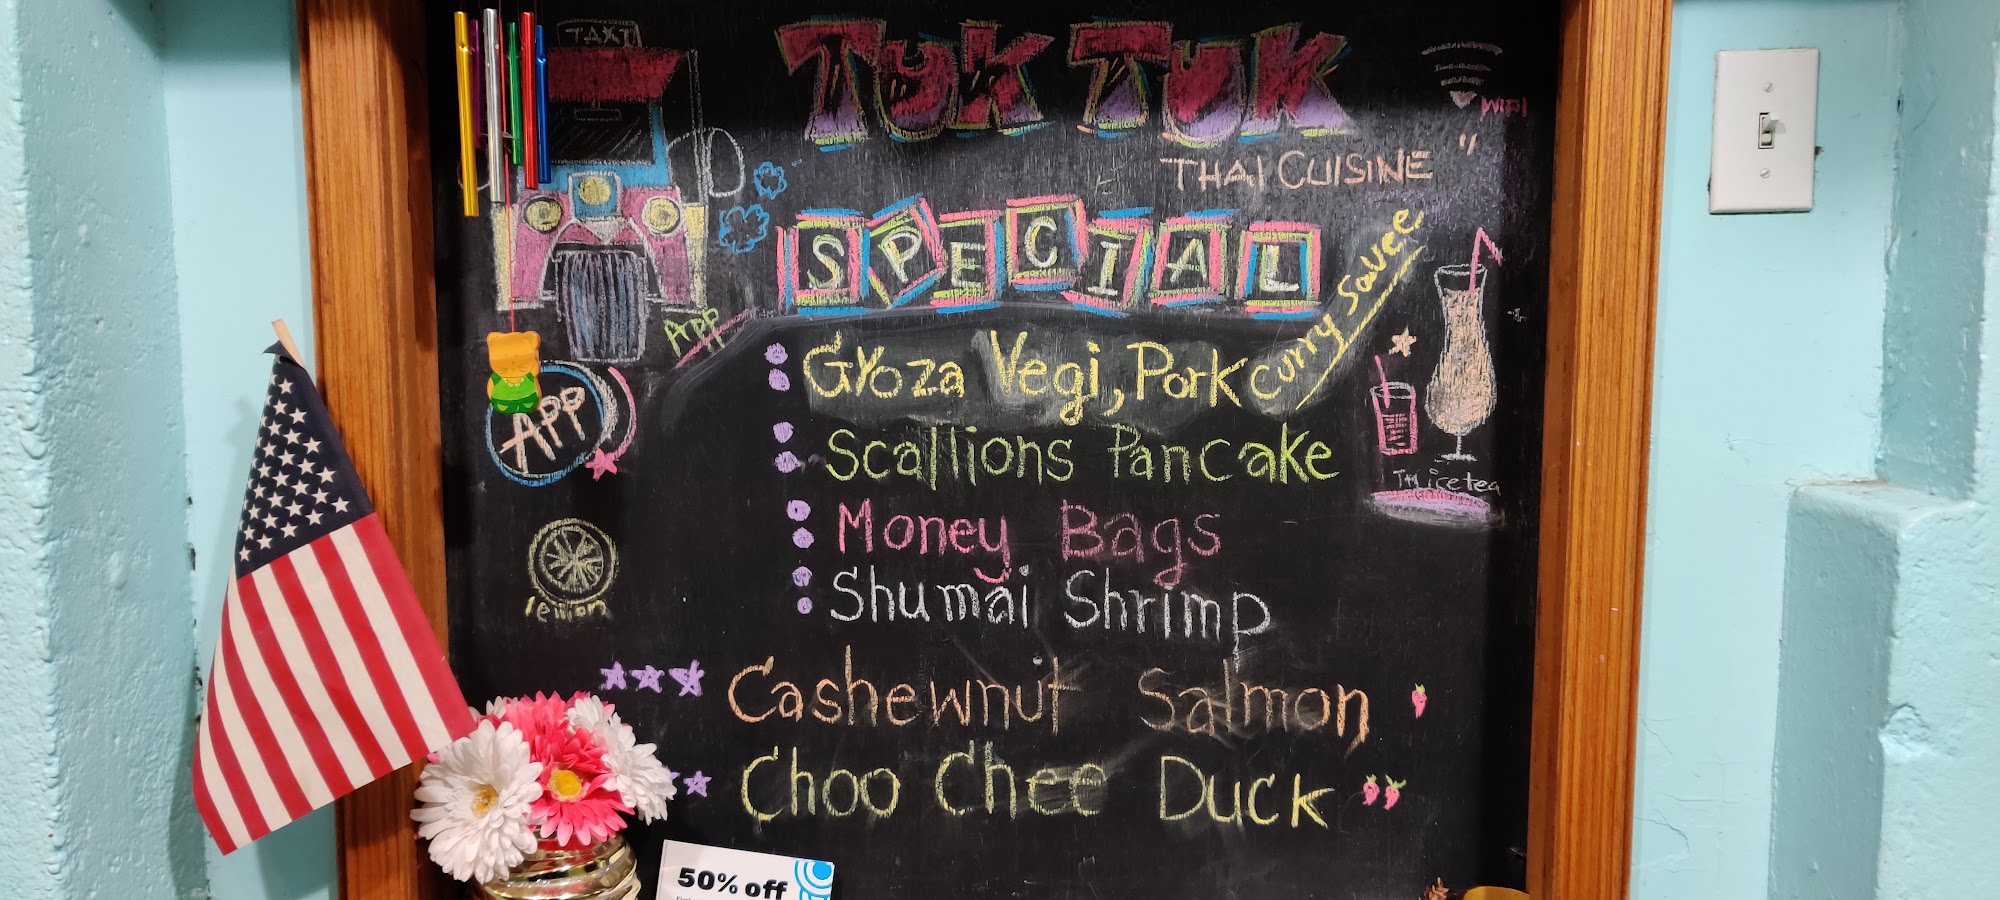 TAXI
TUK TUK
WIFI
"THAI CUISINE"
SPECIAL
APP
GYoza Vegi, Pork curry Sauce
APP
Scallions Pancake
Thai ice tea
Money Bags
Shumai Shrimp
lemon
Cashewnut Salmon
Choo Chee Duck
50% off